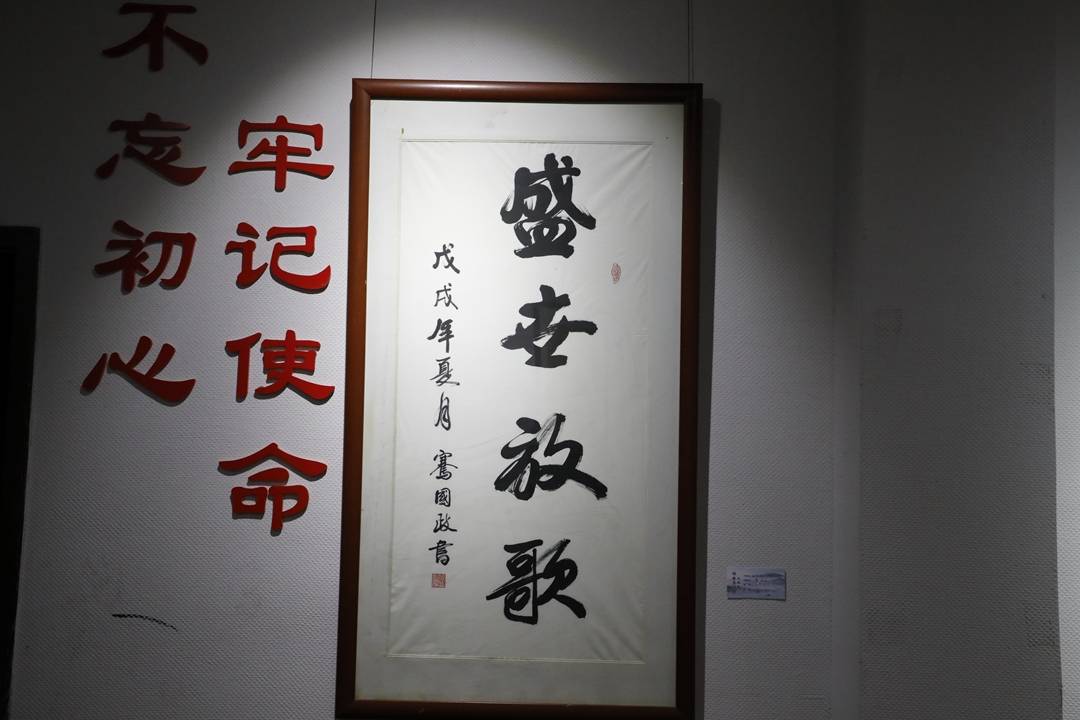 不忘初心
牢记使命
盛世放歌
戊戌年夏月
骞國政書